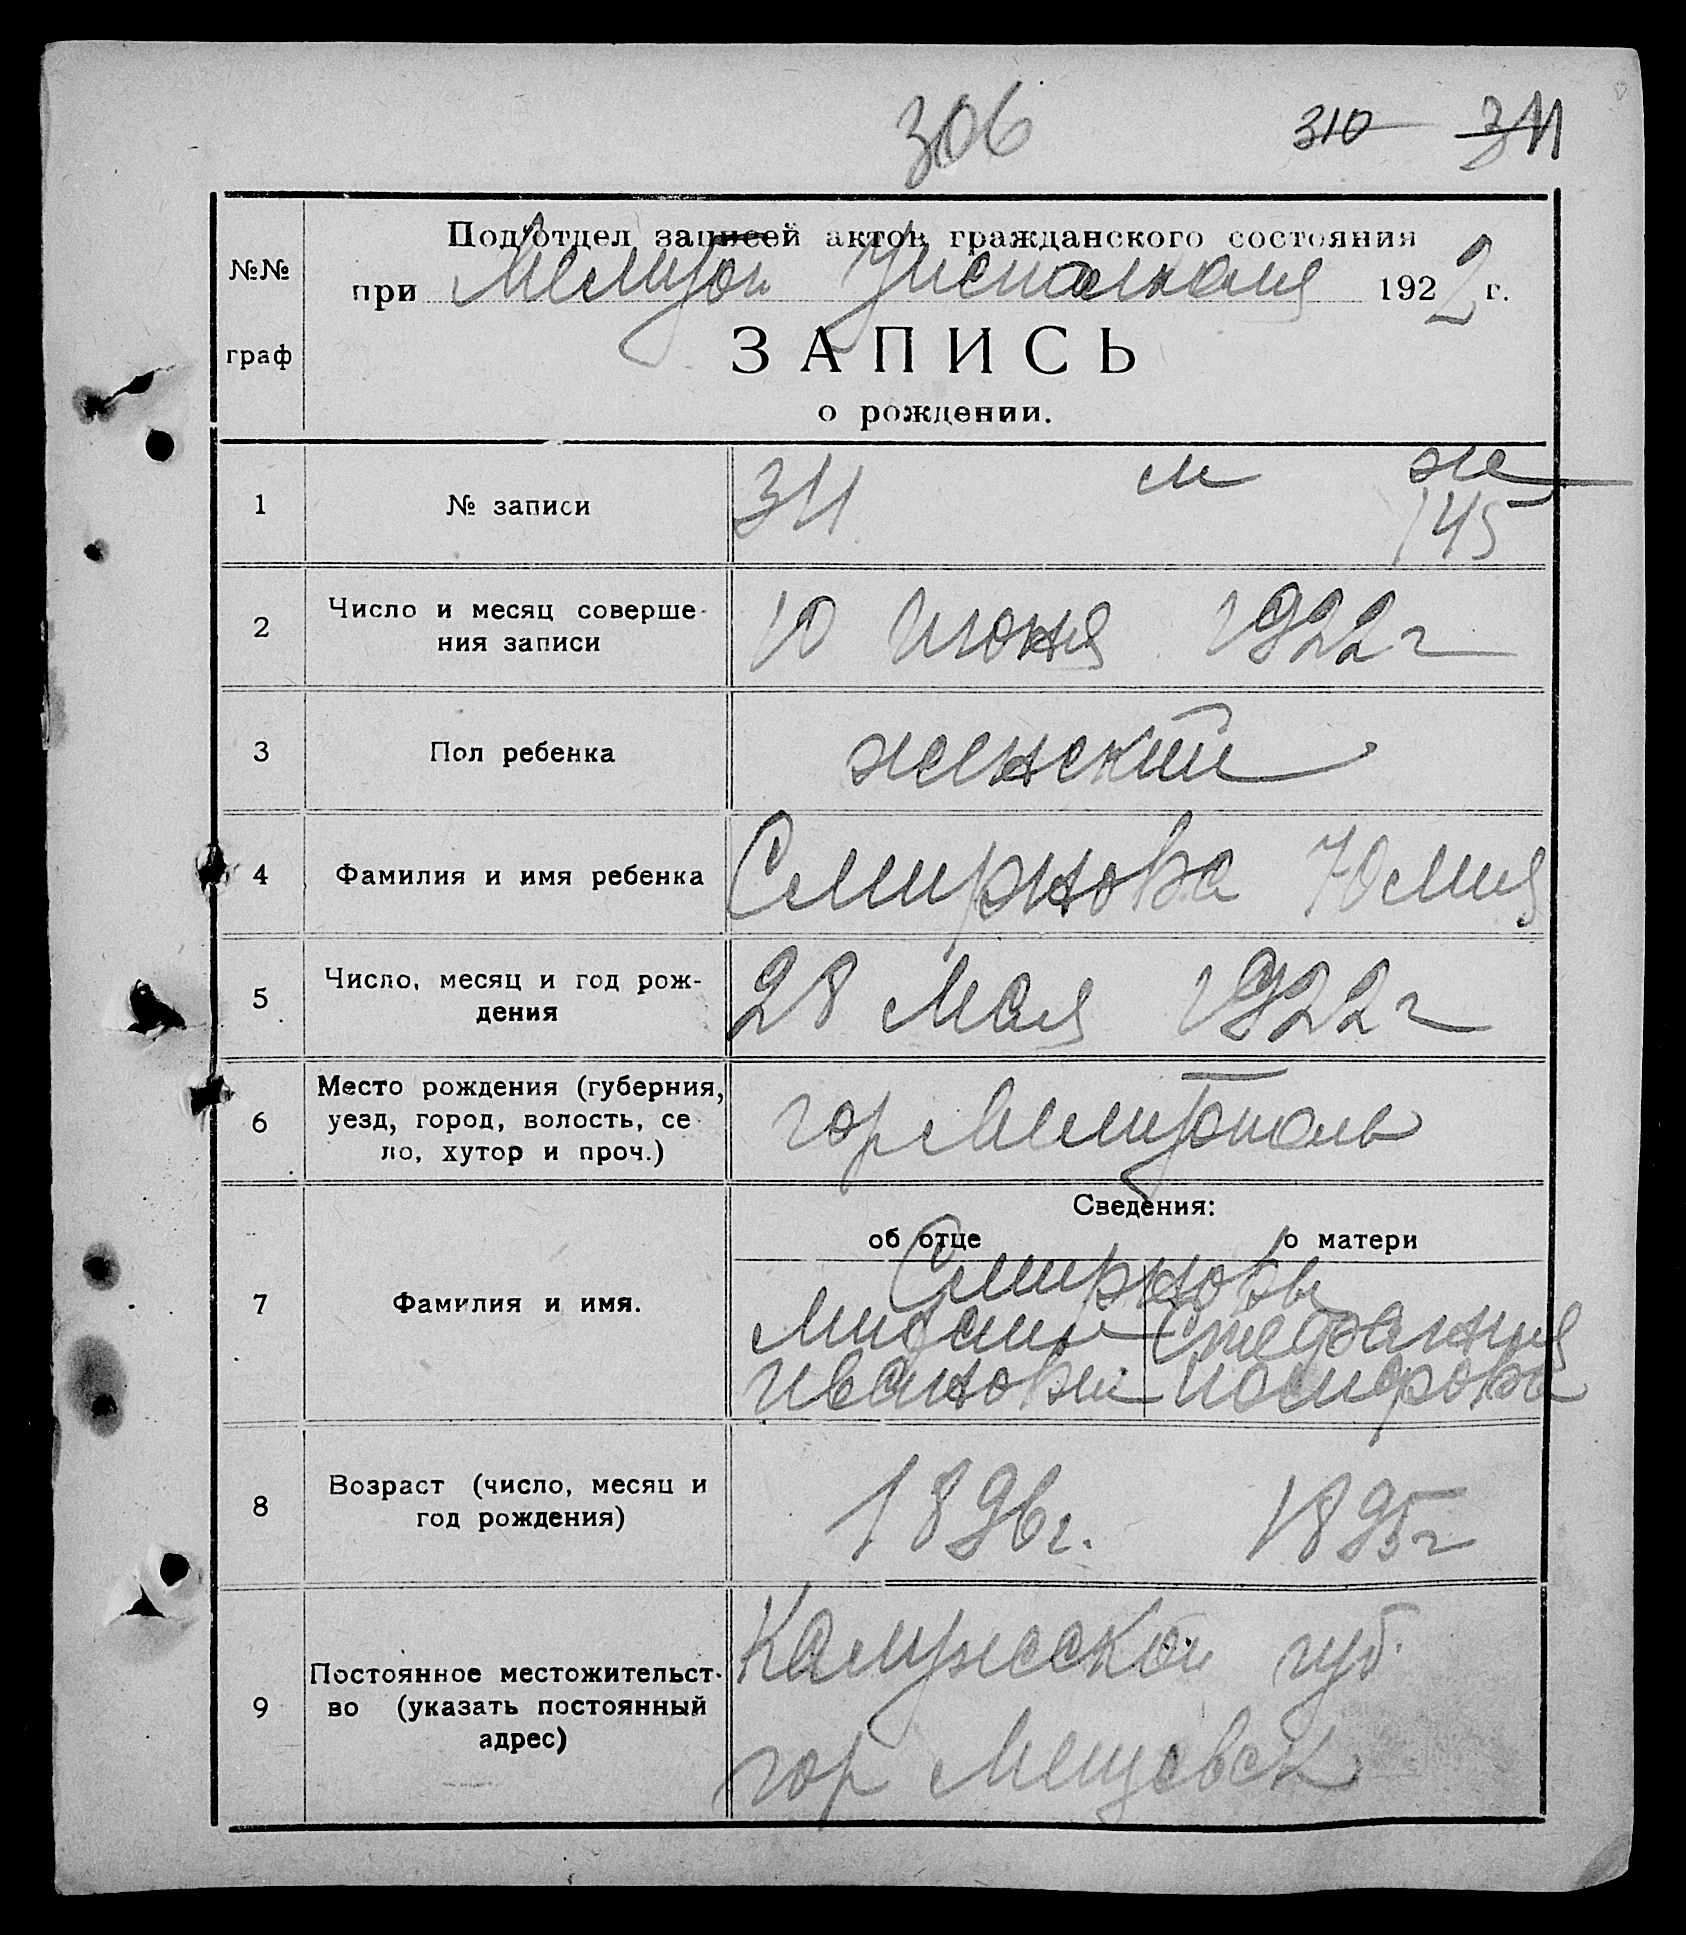 306 310 311
№№ граф
Подотдел записей актов гражданского состояния
при Мелитоп Уисполкома 1922 г.
ЗАПИСЬ
о рождении.
1 № записи 311 м же
145
2 Число и месяц соверше-
ния записи 10 Июня 1922 г
3 Пол ребенка женский
4 Фамилия и имя ребенка Смирнова Юлия
5 Число, месяц и год рож-
дения 28 Мая 1922 г
6 Место рождения (губерния,
уезд, город, волость, се
ло, хутор и проч.) гор Мелитополь
Сведения:
об отце о матери
7 Фамилия и имя. Смирновы
Михаил Стефания
Иванович
8 Возраст (число, месяц и
год рождения) 1896г. 1895г
9 Постоянное местожительст-
во (указать постоянный
адрес) Калужской губ.
гор Мещевск